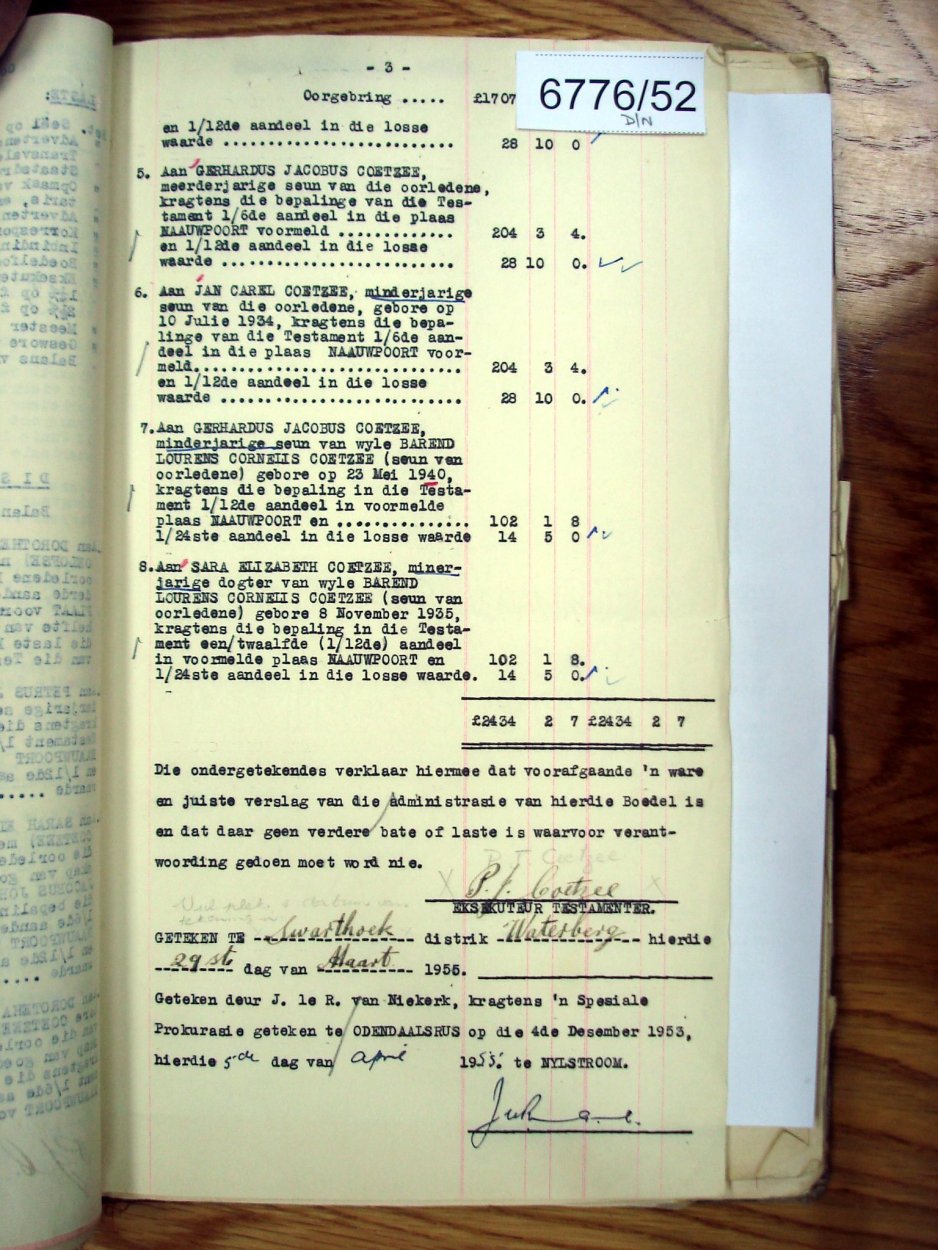 - 3 -
6776/52
D/N
Oorgebring ..... £1707
en 1/12de aandeel in die losse
waarde .......................... 28 10 0
5. Aan GERHARDUS JACOBUS COETZEE,
meerderjarige seun van die oorledene,
kragtens die bepalinge van die Tes-
tament 1/6de aandeel in die plaas
NAAUWPOORT voormeld ............. 204 3 4.
en 1/12de aandeel in die losse
waarde .......................... 28 10 0.
6. Aan JAN CAREL COETZEE, minderjarige
seun van die oorledene, gebore op
10 Julie 1934, kragtens die bepa-
linge van die Testament 1/6de aan-
deel in die plaas NAAUWPOORT voor-
meld............................. 204 3 4.
en 1/12de aandeel in die losse
waarde .......................... 28 10 0.
7. Aan GERHARDUS JACOBUS COETZEE,
minderjarige seun van wyle BAREND
LOURENS CORNELIS COETZEE (seun van
oorledene) gebore op 23 Mei 1940,
kragtens die bepaling in die Testa-
ment 1/12de aandeel in voormelde
plaas NAAUWPOORT en ............... 102 1 8
1/24ste aandeel in die losse waarde 14 5 0
8. Aan SARA ELIZABETH COETZEE, miner-
jarige dogter van wyle BAREND
LOURENS CORNELIS COETZEE (seun van
oorledene) gebore 8 November 1935,
kragtens die bepaling in die Testa-
ment een/twaalfde (1/12de) aandeel
in voormelde plaas NAAUWPOORT en 102 1 8.
1/24ste aandeel in die losse waarde. 14 5 0.
£2434 2 7 £2434 2 7
Die ondergetekendes verklaar hiermee dat voorafgaande 'n ware
en juiste verslag van die administrasie van hierdie Boedel is
en dat daar geen verdere bate of laste is waarvoor verant-
woording gedoen moet word nie.
P. J. Coetzee
P. J. Coetzee
EKSEKUTEUR TESTAMENTER.
GETEKEN TE Swarthoek distrik Waterberg hierdie
29st dag van Maart 1955.
Geteken deur J. le R. van Niekerk, kragtens 'n Spesiale
Prokurasie geteken te ODENDAALSRUS op die 4de Desember 1953,
hierdie 5de dag van April 1955. te NYLSTROOM.